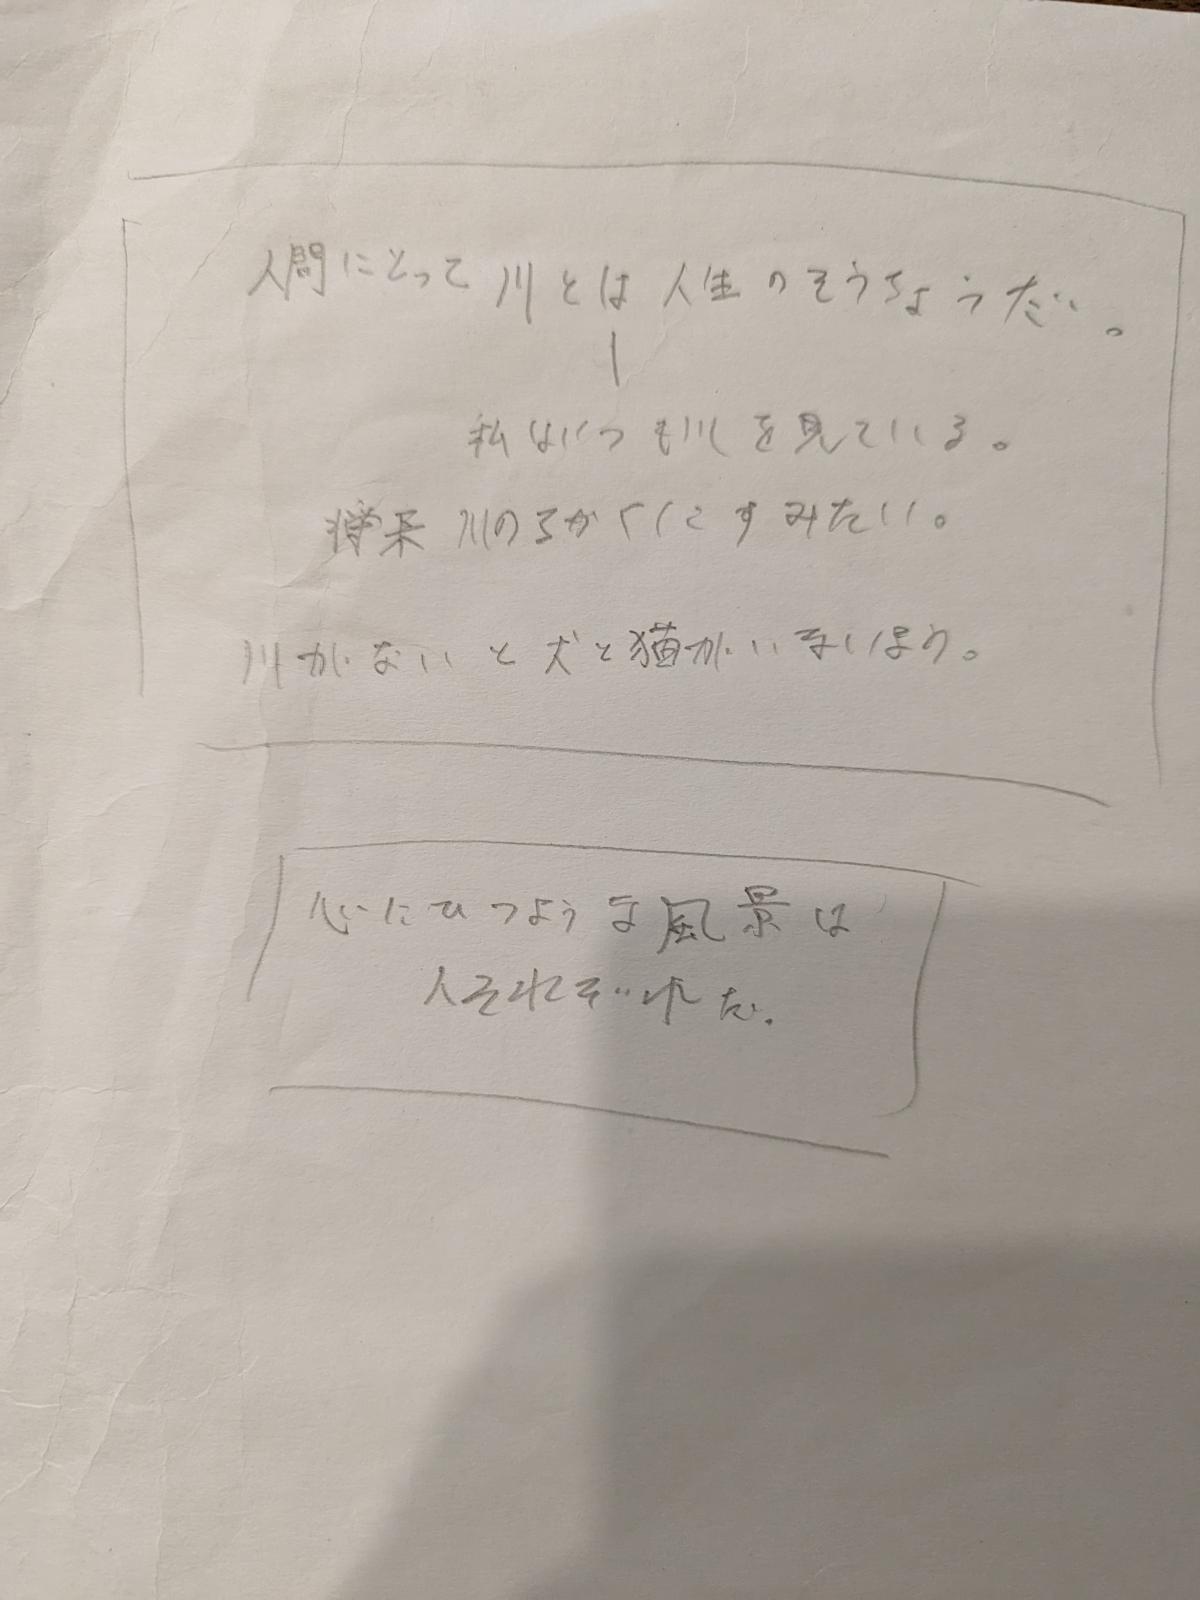 人間にとって川とは人生のそうちょうだ。
私はいつも川を見ている。
将来川のちかくにすみたい。
川がないと犬と猫がい
心にひつような風景は
人それぞれだ.